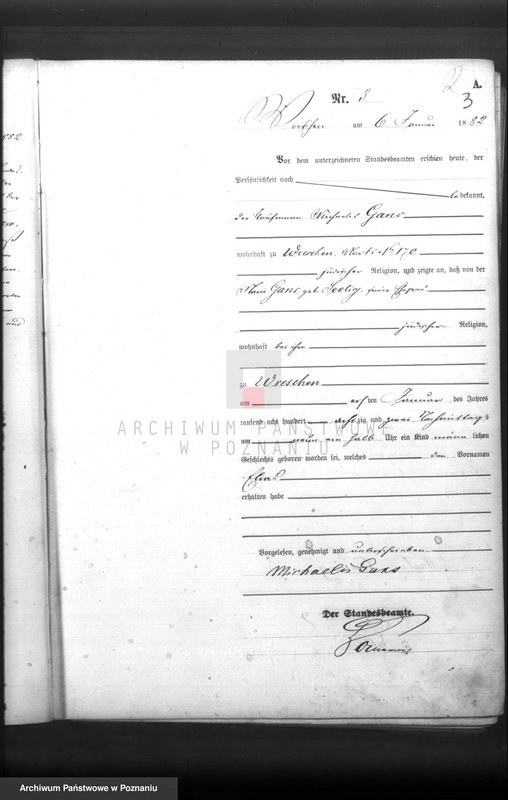 A.
3
Nr. 3
Wreschen am 6 Januar 1882
Vor dem unterzeichneten Standesbeamten erschien heute, der
Persönlichkeit nach
bekannt,
der Kaufmann Michaelis Gans
wohnhaft zu Wreschen, Markt No 170
jüdischer Religion, und zeigte an, daß von der
Gans geb. Seelig, seiner Ehefrau
jüdischer Religion,
wohnhaft bei ihm
zu Wreschen
am ersten Januar des Jahres
tausend acht hundert achtzig und zwei Nachmittags
um neun ein halb Uhr ein Kind männlichen
Geschlechts geboren worden sei, welches den Vornamen
Elias
erhalten habe
Vorgelesen, genehmigt und unterschrieben
Michaelis Gans
Der Standesbeamte.
ARCHIWUM PAŃSTWOWE
W POZNANIU
82
und
Archiwum Państwowe w Poznaniu